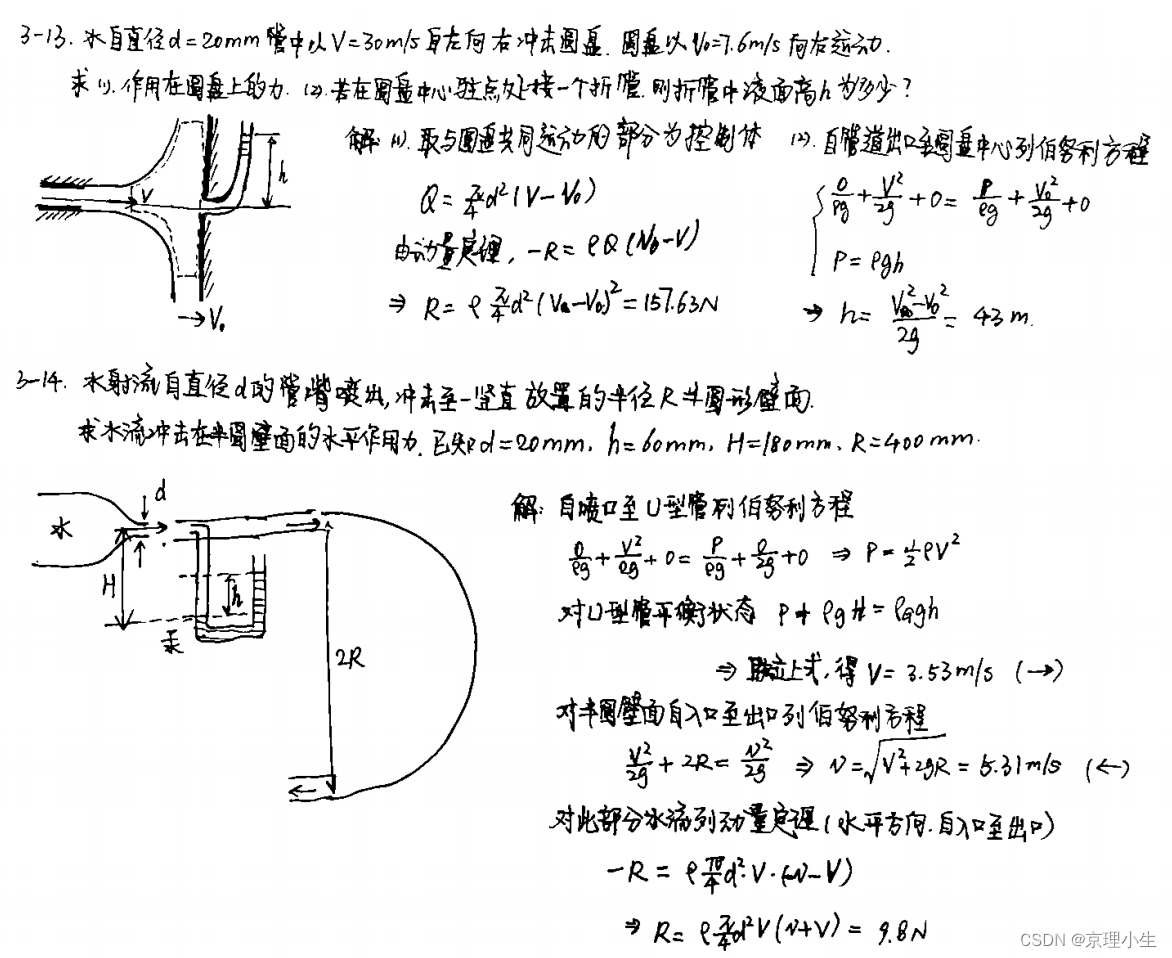 3-13. 水自直径d=20mm管中以V=30m/s自左向右冲击圆盘. 圆盘以V₀=7.6m/s向右运动.
求(1). 作用在圆盘上的力. (2). 若在圆盘中心驻点处接一个折管, 则折管中液面高h为多少?
V
h
V₀
解: (1). 取与圆盘共同运动的部分为控制体
Q = π/4 d²(V-V₀)
由动量定理, -R = ρQ(V₀-V)
⇒ R = ρ π/4 d²(V-V₀)² = 157.63N
(2). 自管道出口至圆盘中心列伯努利方程
0/ρg + V²/2g + 0 = P/ρg + V₀²/2g + 0
P = ρgh
⇒ h = (V²-V₀²)/2g = 43 m.
3-14. 水射流自直径d的管嘴喷出, 冲击至一竖直放置的半径R半圆形壁面.
求水流冲击在半圆壁面的水平作用力. 已知d=20mm, h=60mm, H=180mm, R=400mm.
d
水
H
h
汞
2R
解: 自喷口至U型管列伯努利方程
0/ρg + V²/2g + 0 = P/ρg + 0/2g + 0 ⇒ P = ½ρV²
对U型管平衡状态 P + ρgH = ρgh
⇒ 联立上式, 得 V = 3.53m/s (→)
对半圆壁面自入口至出口列伯努利方程
V²/2g + 2R = v²/2g ⇒ v = √(V²+2gR) = 5.31m/s (←)
对此部分水流列动量定理(水平方向. 自入口至出口)
-R = ρ π/4 d²·V·(-v-V)
⇒ R = ρ π/4 d²V(v+V) = 9.8N
CSDN @京理小生